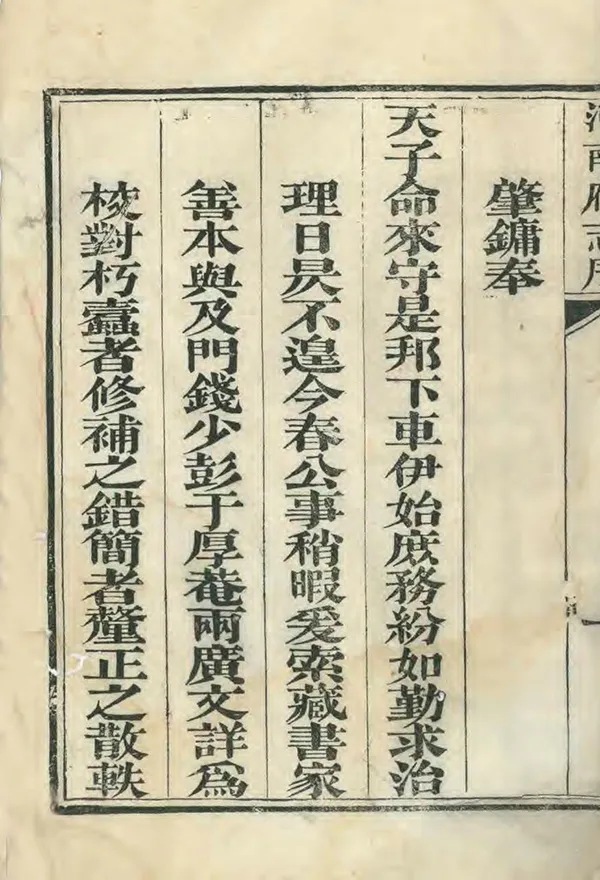 河南府志序
肇鏞奉
天子命來守是邦下車伊始庶務紛如勤求治
理日昃不遑今春公事稍暇爰索藏書家
善本與及門錢少彭于厚菴兩廣文詳爲
校對朽蠹者修補之錯簡者釐正之散軼